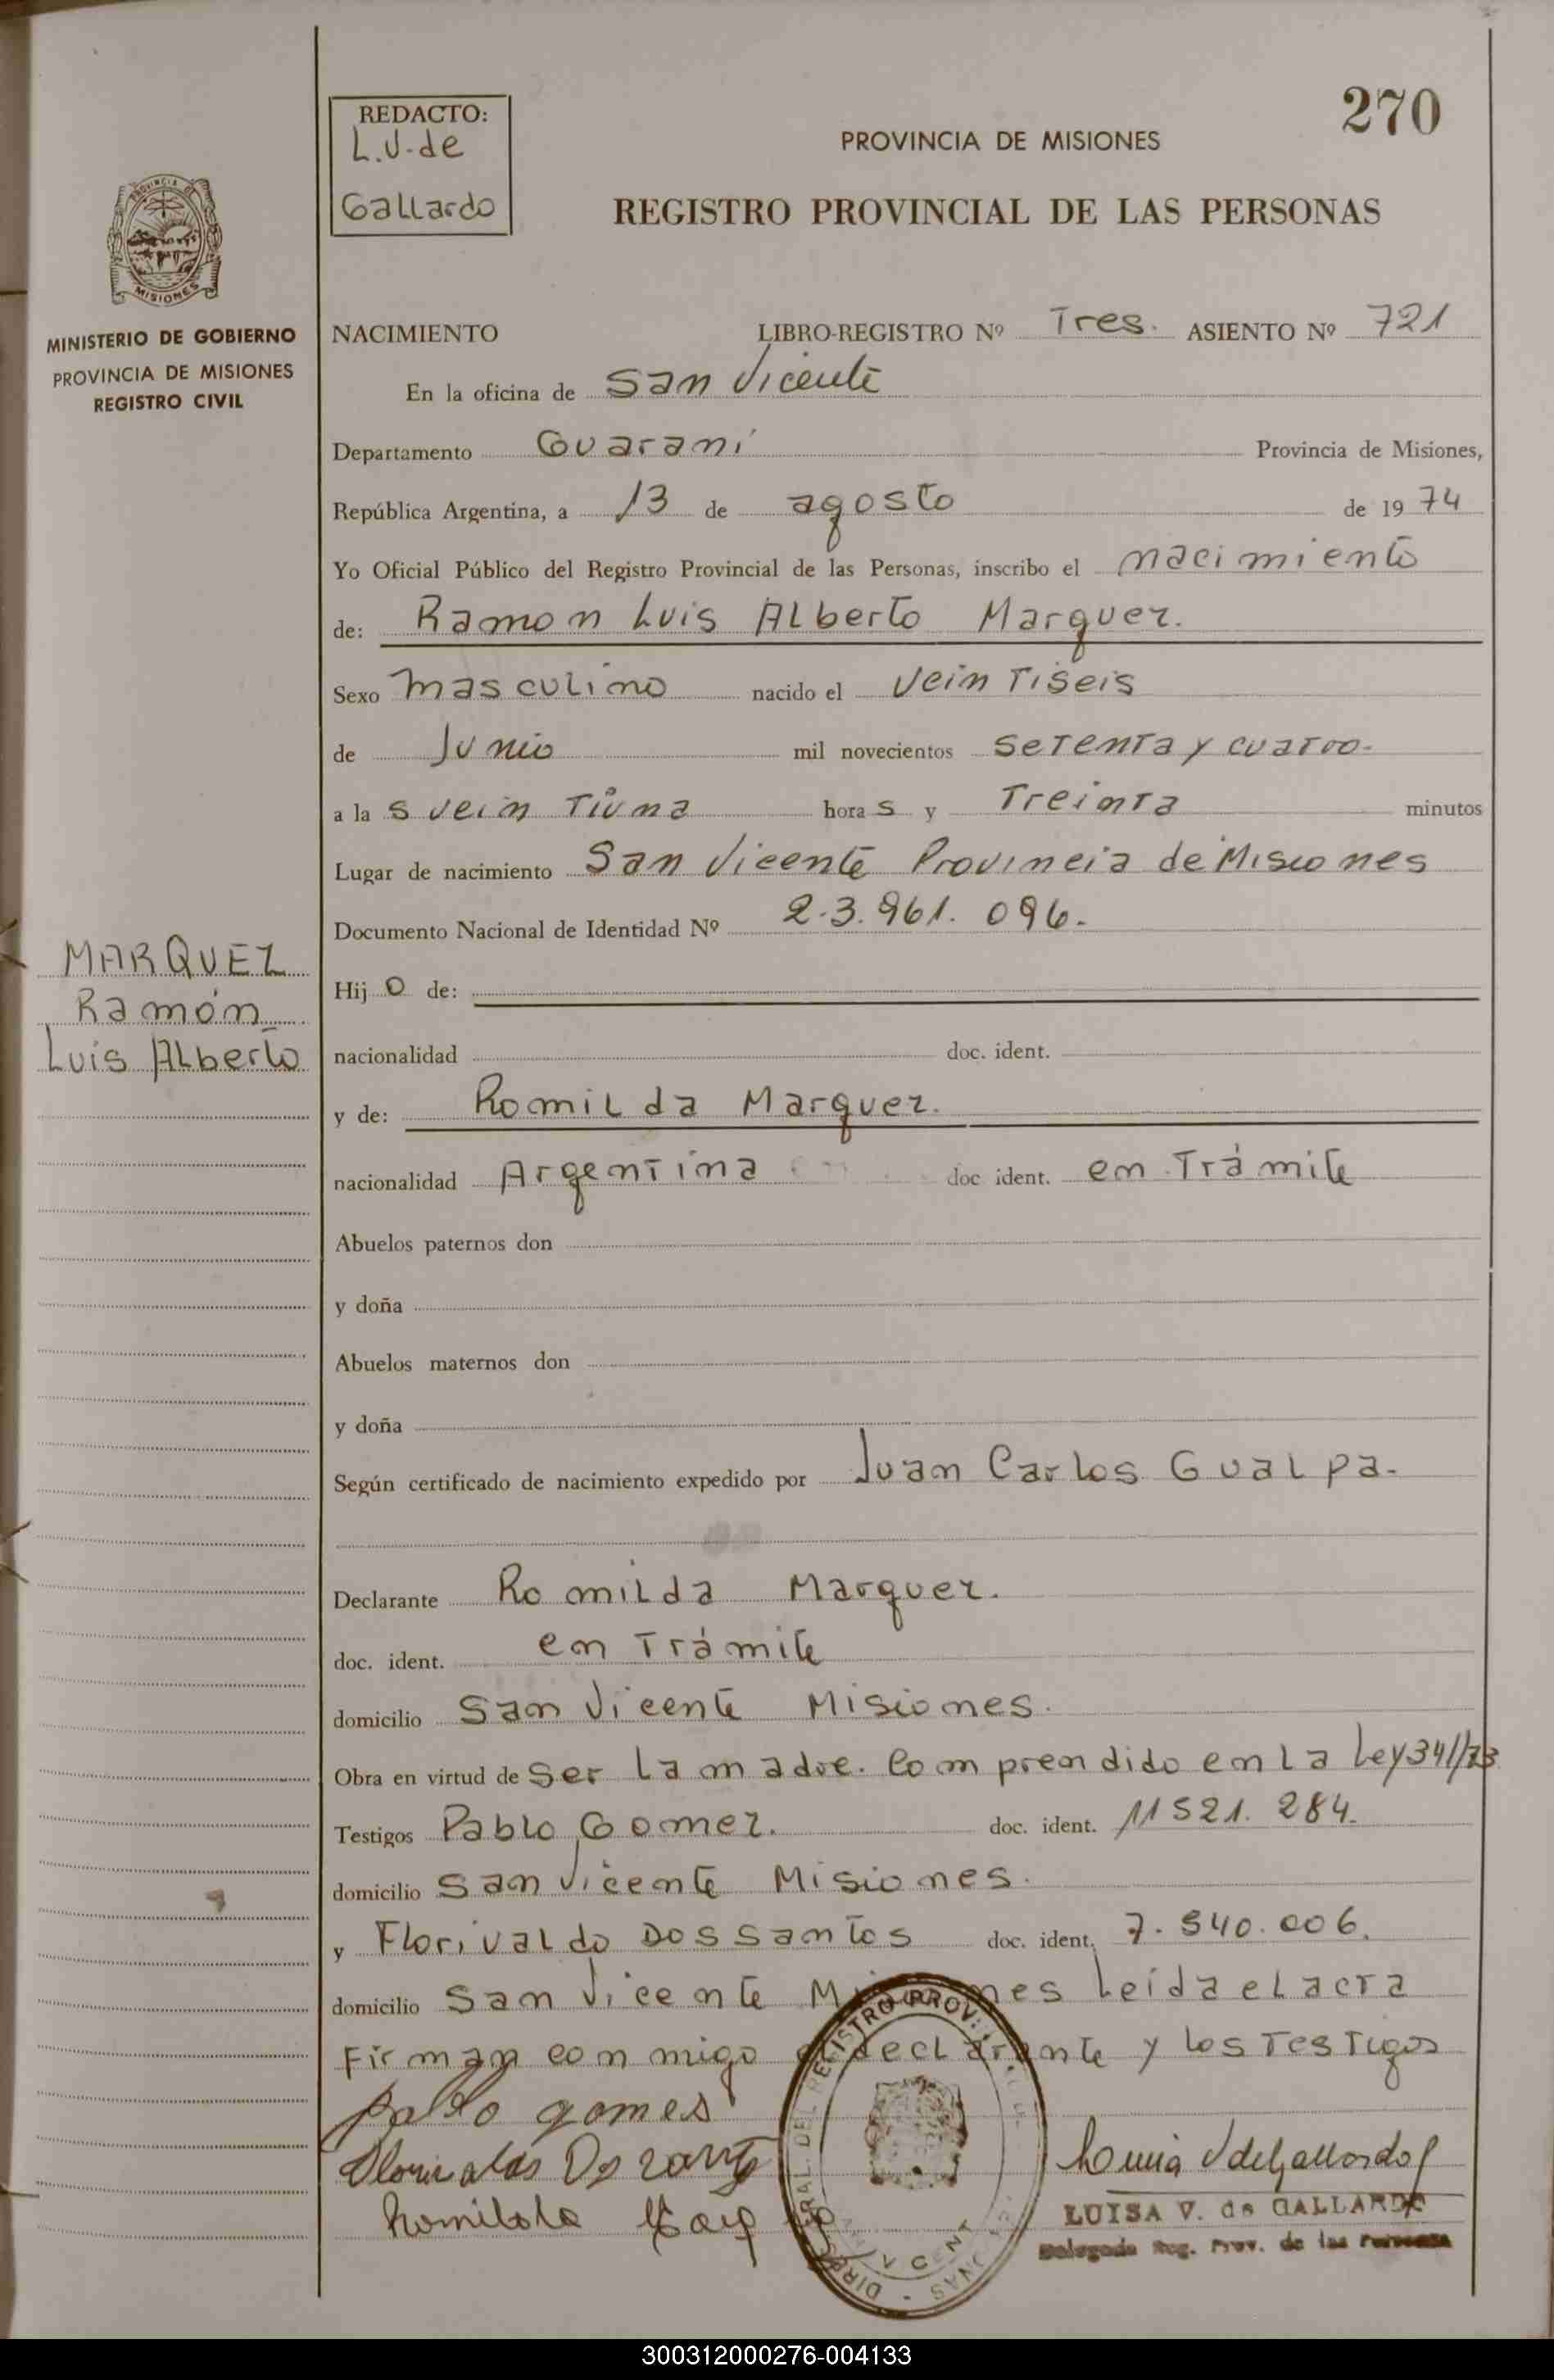 270
REDACTO:
L.V. de
Gallardo
PROVINCIA DE MISIONES
REGISTRO PROVINCIAL DE LAS PERSONAS
PROVINCIA DE
MISIONES
MINISTERIO DE GOBIERNO
PROVINCIA DE MISIONES
REGISTRO CIVIL
NACIMIENTO LIBRO-REGISTRO Nº Tres. ASIENTO Nº 721
En la oficina de San Vicente
Departamento Guaraní Provincia de Misiones,
República Argentina, a 13 de agosto de 1974
Yo Oficial Público del Registro Provincial de las Personas, inscribo el nacimiento
de: Ramon Luis Alberto Marquez.
Sexo masculino nacido el veintiseis
de Junio mil novecientos setenta y cuatro-
a las veintiuna horas y Treinta minutos
Lugar de nacimiento San Vicente Provincia de Misiones
Documento Nacional de Identidad Nº 2.3.961.096.
MARQUEZ
Ramón
Luis Alberto
Hijo de:
nacionalidad doc. ident.
y de: Romilda Marquez.
nacionalidad Argentina doc ident. en Trámite
Abuelos paternos don
y doña
Abuelos maternos don
y doña
Según certificado de nacimiento expedido por Juan Carlos Gualpa.
Declarante Romilda Marquez.
doc. ident. en Trámite
domicilio San Vicente Misiones.
Obra en virtud de ser la madre. Comprendido en la Ley 341/73
Testigos Pablo Gomez. doc. ident. 11521.284.
domicilio San Vicente Misiones.
y Florivaldo Dos Santos doc. ident. 7.540.006.
domicilio San Vicente Misiones Leída el acta
Firman conmigo el declarante y los Testigos
pablo gomes
Dos
Romilda
V de Gallardo
LUISA V. de GALLARDO
Delegada Reg. Prov. de las Personas
300312000276-004133